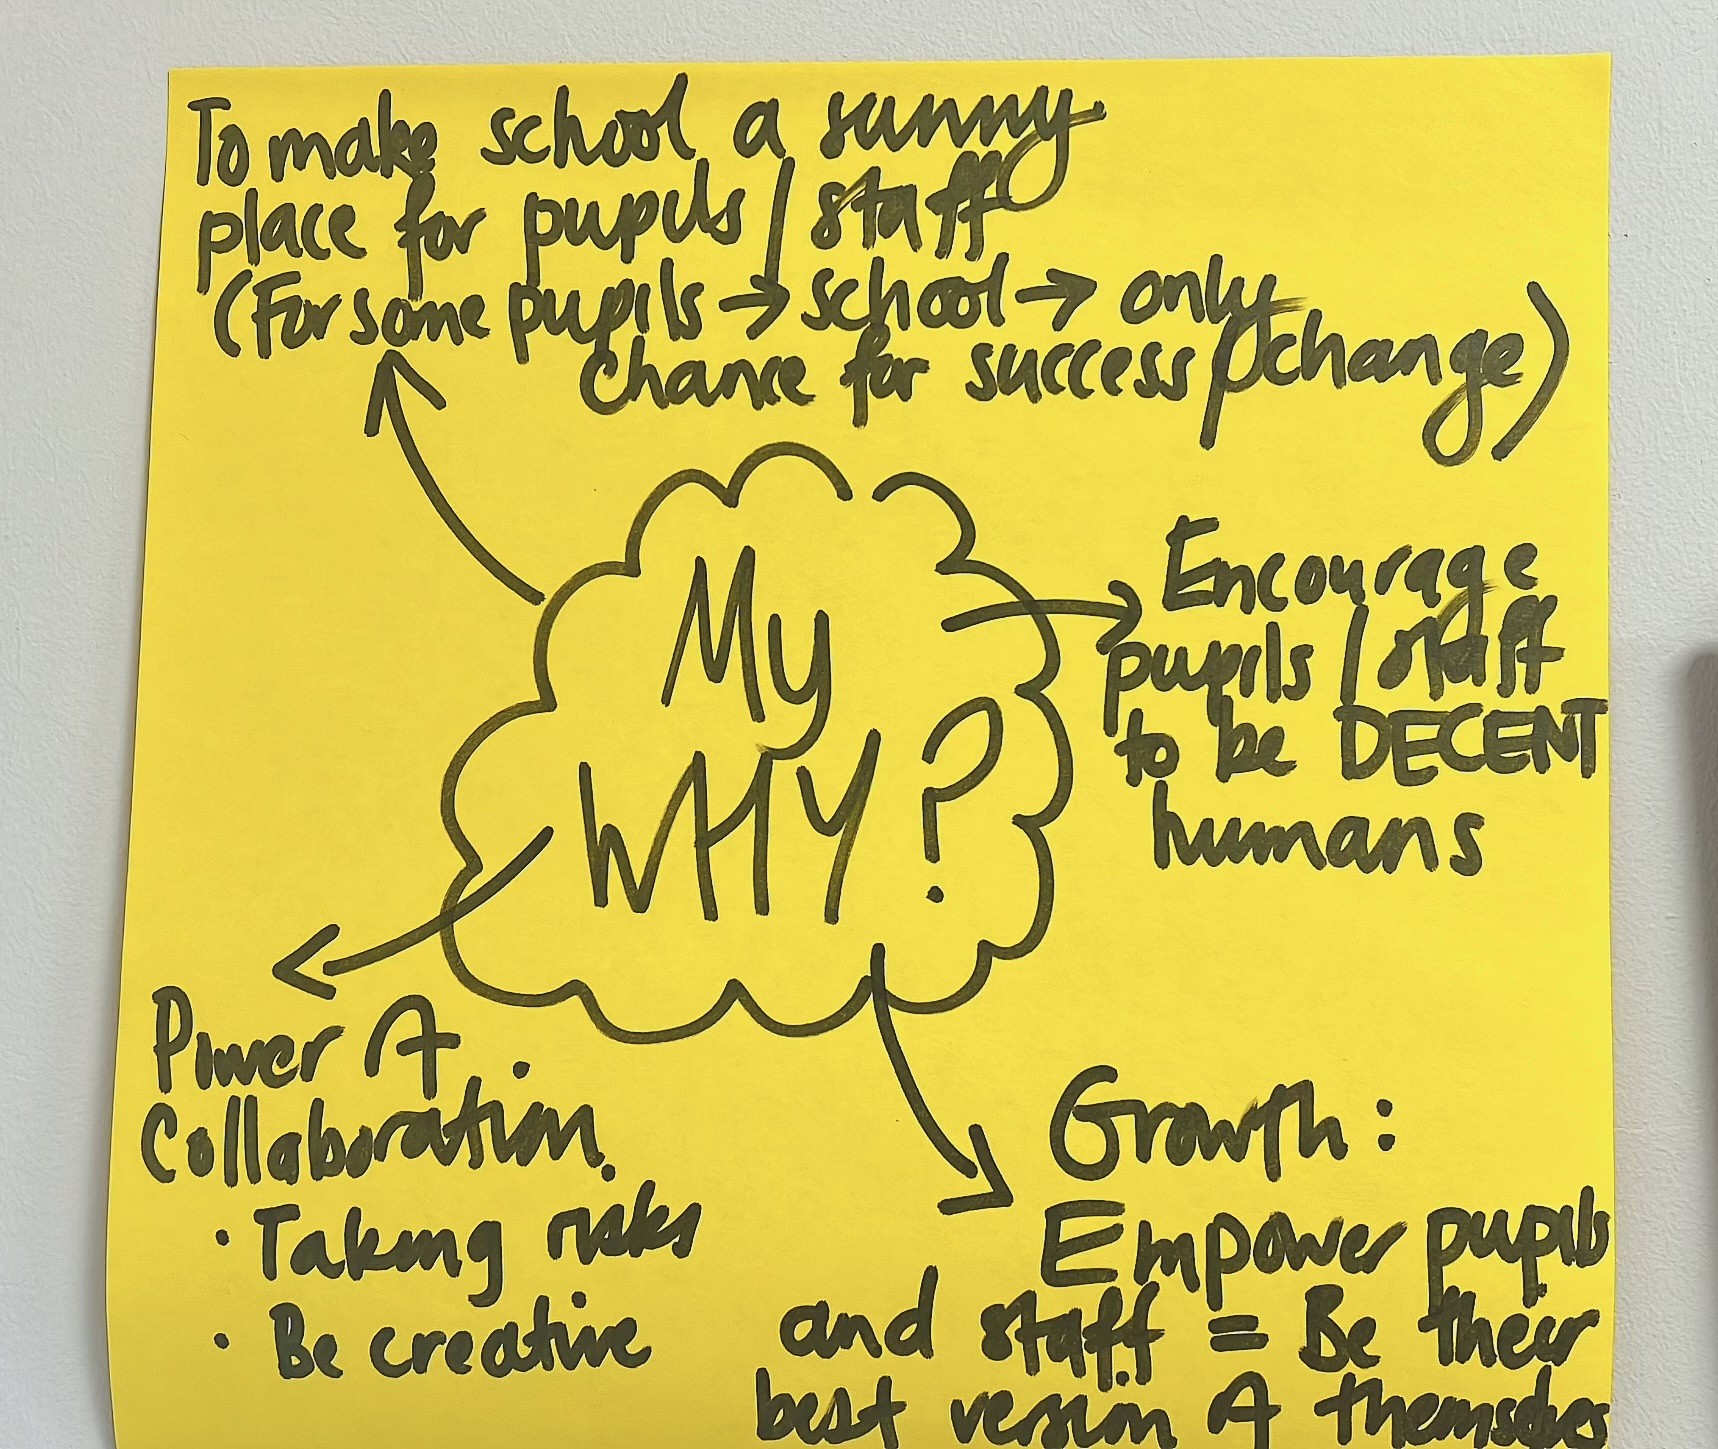 To make school a sunny
place for pupils / staff
(For some pupils → school → only
chance for success / change)
My
WHY?
Encourage
pupils / staff
to be DECENT
humans
Power of
Collaboration.
· Taking risks
· Be creative
Growth:
Empower pupils
and staff = Be their
best version of themselves